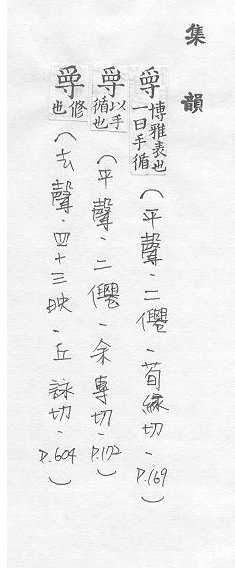 集韻
博雅表也
一曰手循
(平聲.二僊.荀緣切.P.169)
以手
循也
(平聲.二僊.余專切.P.172)
修
也
(去聲.四十三映.丘詠切.P.604)